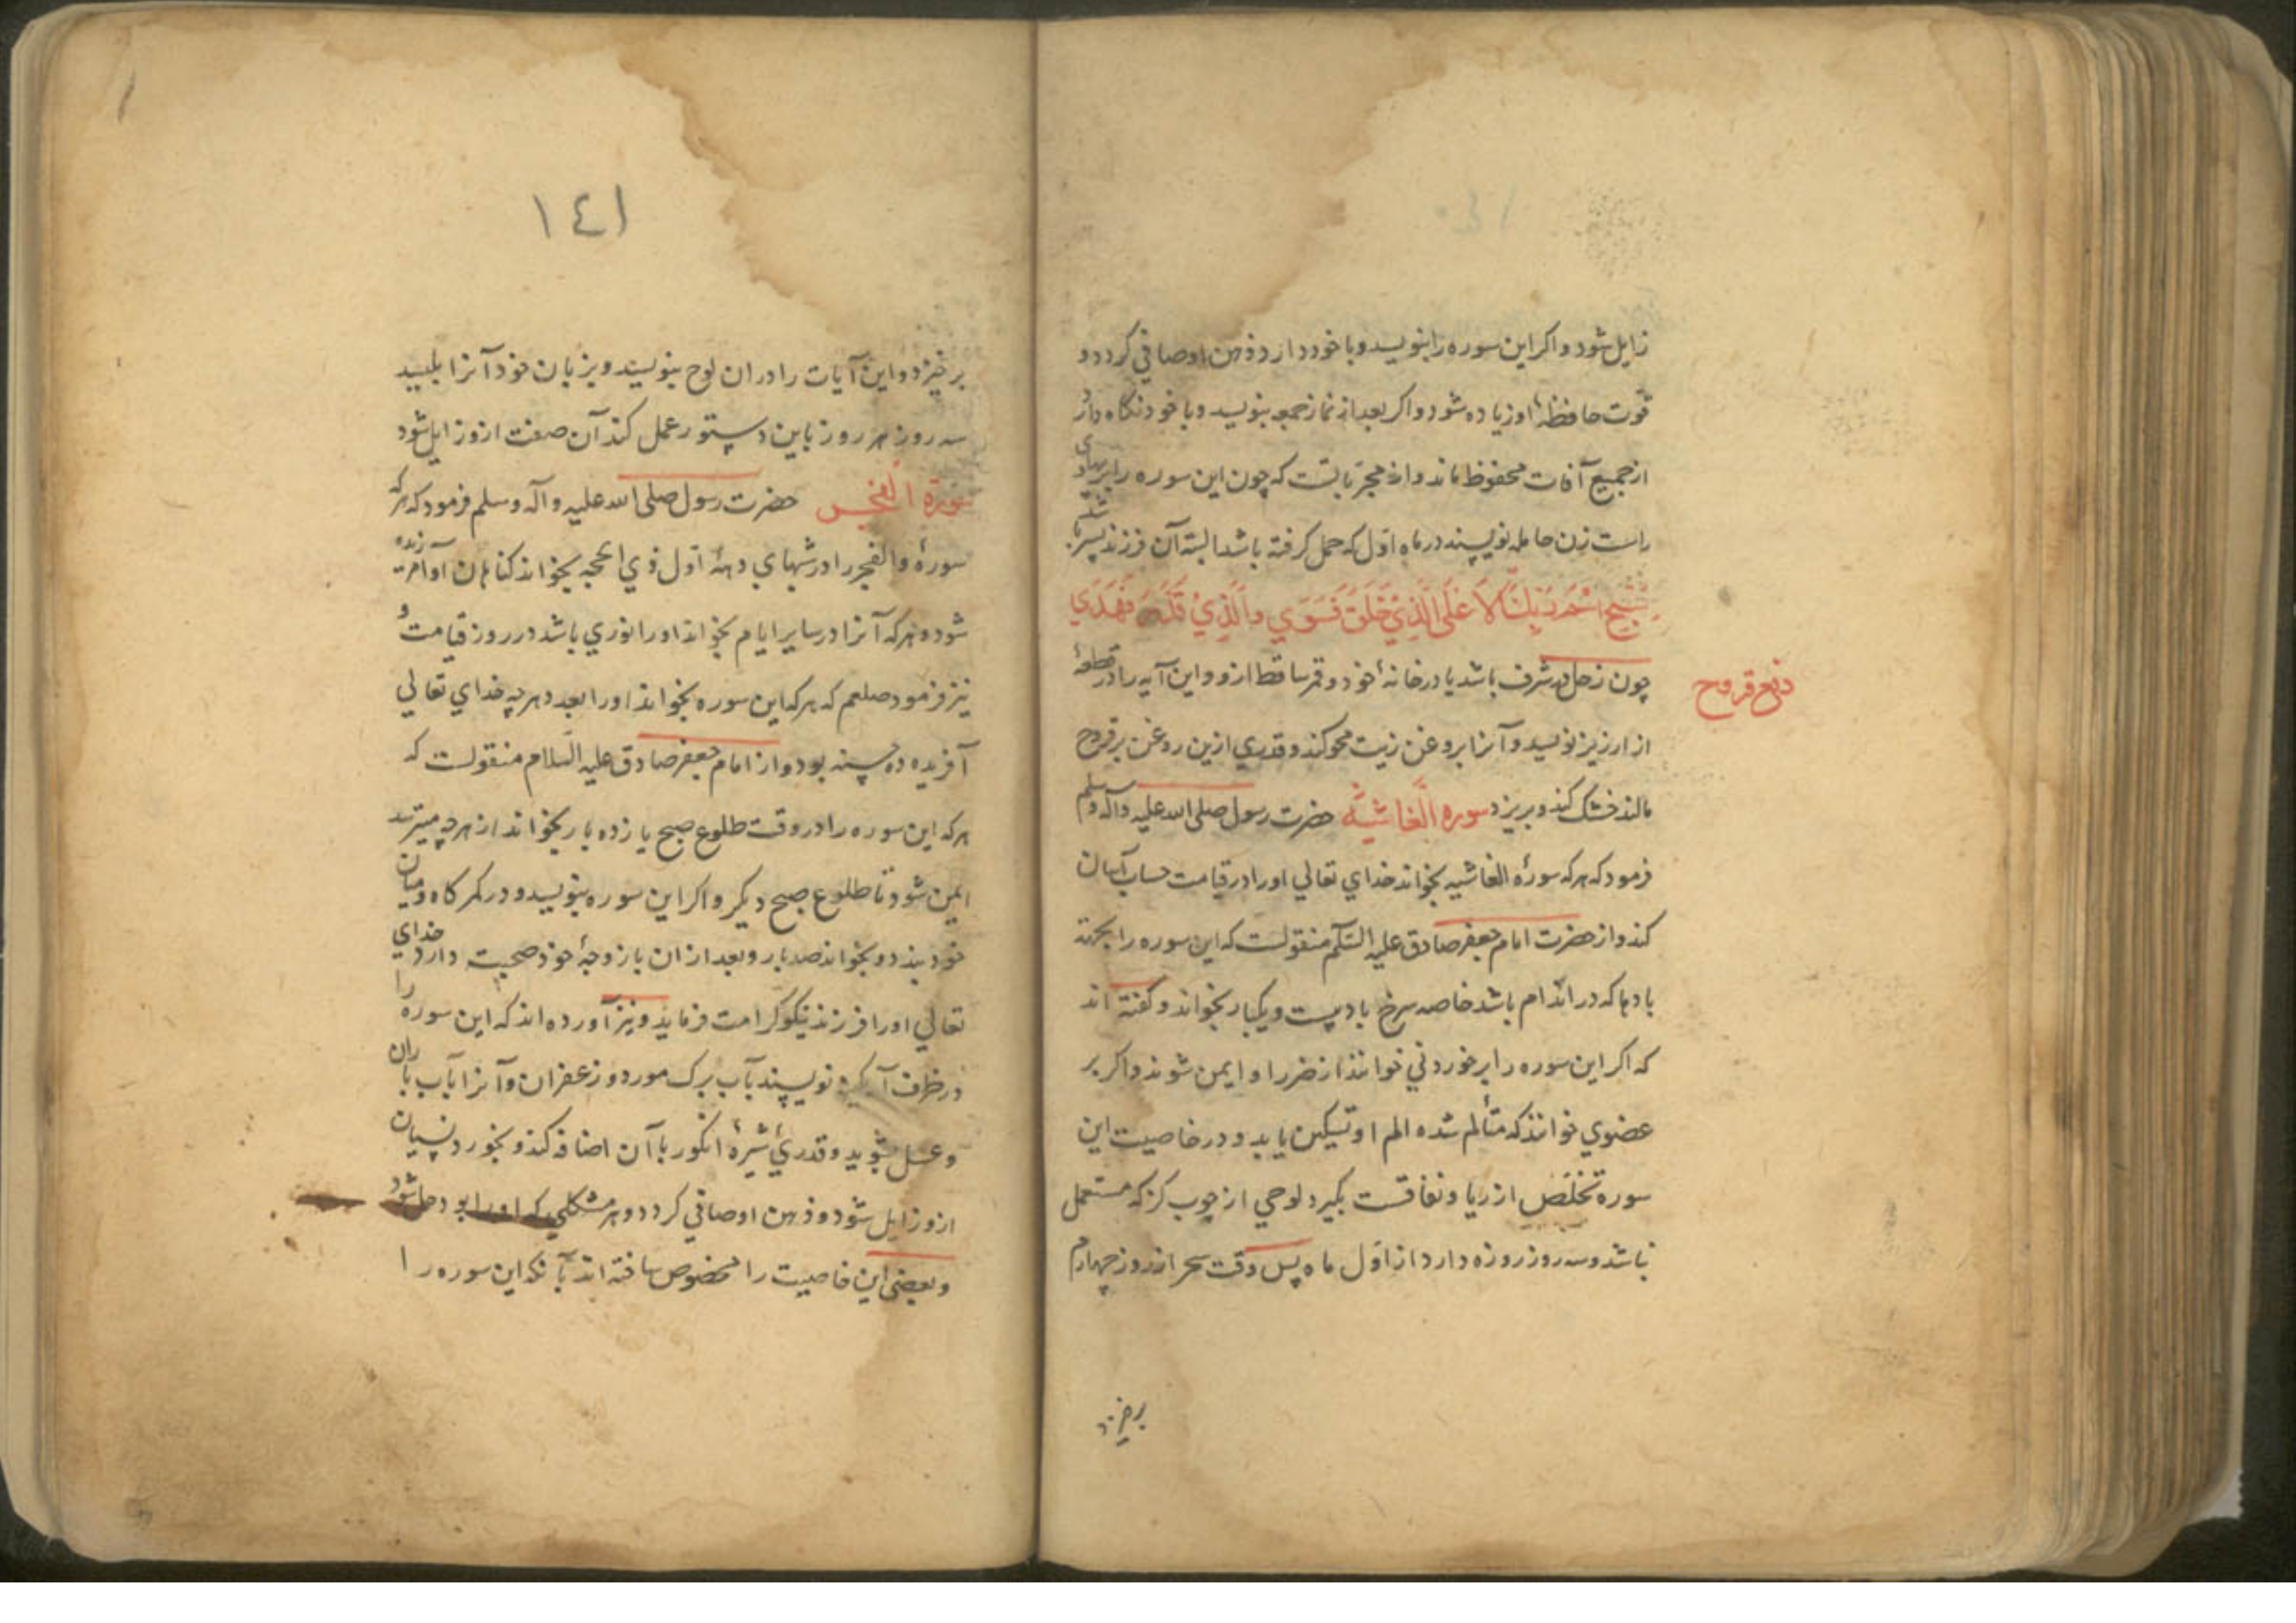 زایل شود و اکر این سوره را بنویسد و با خود دارد ذهن او صافی کردد و
قوت حافظهٔ او زیاده شود و اکر بعد از نماز جمعه بنویسد و با خود نکاه دارد
از جمیع آفات محفوظ ماند و از مجرباتست که چون این سوره را بر پهلوی
راست زن حامله نویسند در ماه اول که حمل کرفته باشد البته آن فرزند پسر باشد
سَبِّحِ اسْمَ رَبِّكَ الْأَعْلَى الَّذِي خَلَقَ فَسَوَّي وَالَّذِيْ قَدَّرَ فَهَدَي
دفع قروح
چون زحل در شرف باشد یا در خانهٔ خود و قمر ساقط ازو و این آیه را در قطعهٔ
از ارزیز نویسد و آنرا بروغن زیت محو کند و قدری ازین روغن بر قروح
مالند خشک کند و بریزد سوره الغاشیة حضرت رسول صلی الله علیه و آله وسلم
فرمود که هرکه سورهٔ الغاشیه بخواند خدای تعالی او را در قیامت حساب آسان
کند و از حضرت امام جعفر صادق علیه السلم منقولست که این سوره را بجهة
بادها که در اندام باشد خاصه سرخ باد بیست و یکبار بخواند و کفته اند
که اکر این سوره را بر خوردنی خوانند از ضرر او ایمن شوند و اکر بر
عضوی خوانند که متألم شده الم او تسکین یابد و در خاصیت این
سوره تخلص از ریا و نفاقست بکیرد لوحی از چوب کز که مستعمل
نباشد و سه روز روزه دارد از اول ماه پس وقت سحر از روز چهارم
برخیزد
١٤١
برخیزد و این آیات را در ان لوح بنویسد و بزبان خود آنرا بلیسد
سه روز هر روز باین دستور عمل کند آن صفت ازو زایل شود
سورة الفجر حضرت رسول صلی الله علیه و آله وسلم فرمود که هرکه
سورهٔ والفجر را در شبهای دههٔ اول ذی الحجه بخواند کناهان او آمرزیده
شود و هرکه آنرا در سایر ایام بخواند او را نوری باشد در روز قیامت و
نیز فرمود صلعم که هرکه این سوره بخواند او را بعدد هر چه خدای تعالی
آفریده ده حسنه بود و از امام جعفر صادق علیه السلام منقولست که
هرکه این سوره را در وقت طلوع صبح یازده بار بخواند از هرچه میترسد
ایمن شود تا طلوع صبح دیکر و اکر این سوره بنویسد و در کمرکاه و میان
خود بندد و بخواند صد بار و بعد از ان با زوجهٔ خود صحبت دارد خدای
تعالی او را فرزند نیکو کرامت فرماید و نیز آورده اند که این سوره را
در ظرف آبکینه نویسند بآب برک مورد و زعفران و آنرا بآب باران
و عسل بشوید و قدری شیرهٔ انکور با آن اضافه کند و بخورد نسیان
ازو زایل شود و ذهن او صافی کردد و هر مشکلی که او را بود حل شود
و بعضی این خاصیت را مخصوص ساخته اند بآنکه این سوره را